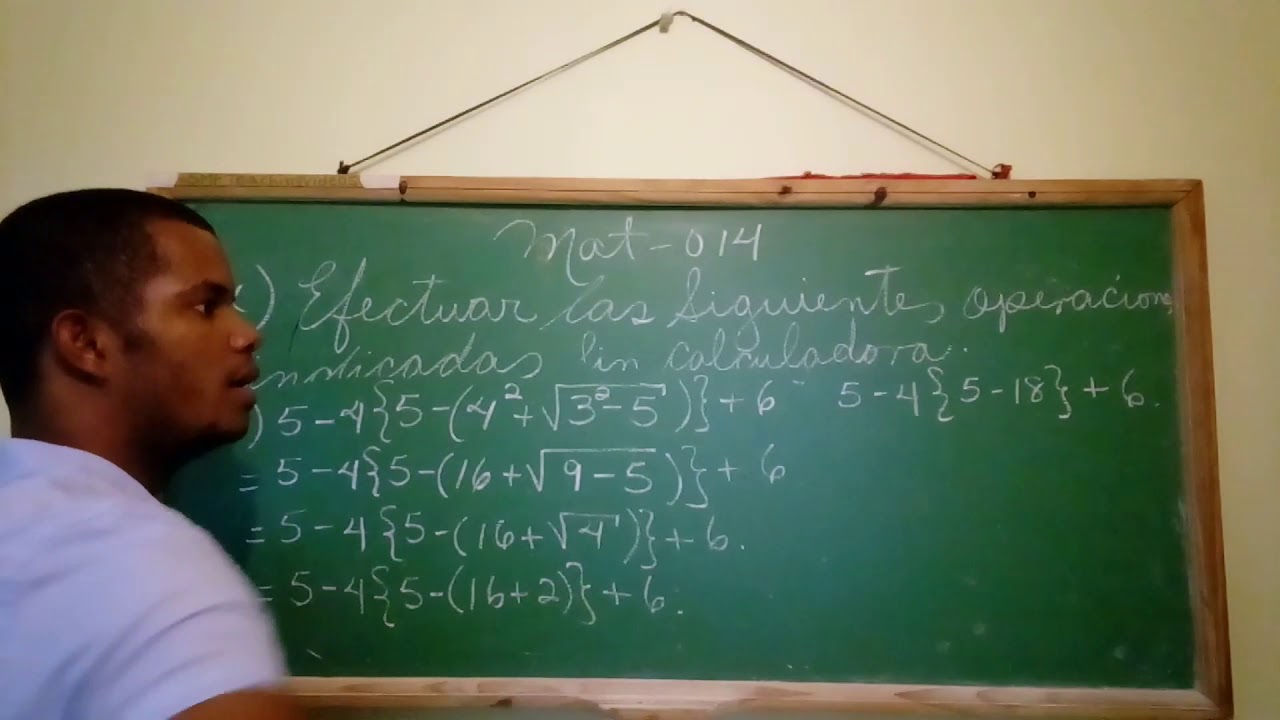 Mat-014
) Efectuar las siguientes, operacion
indicadas sin calculadora.
) 5-4{5-(4²+√(3²-5))}+6
5-4{5-18}+6.
= 5-4{5-(16+√(9-5))}+6
= 5-4{5-(16+√4)}+6.
= 5-4{5-(16+2)}+6.